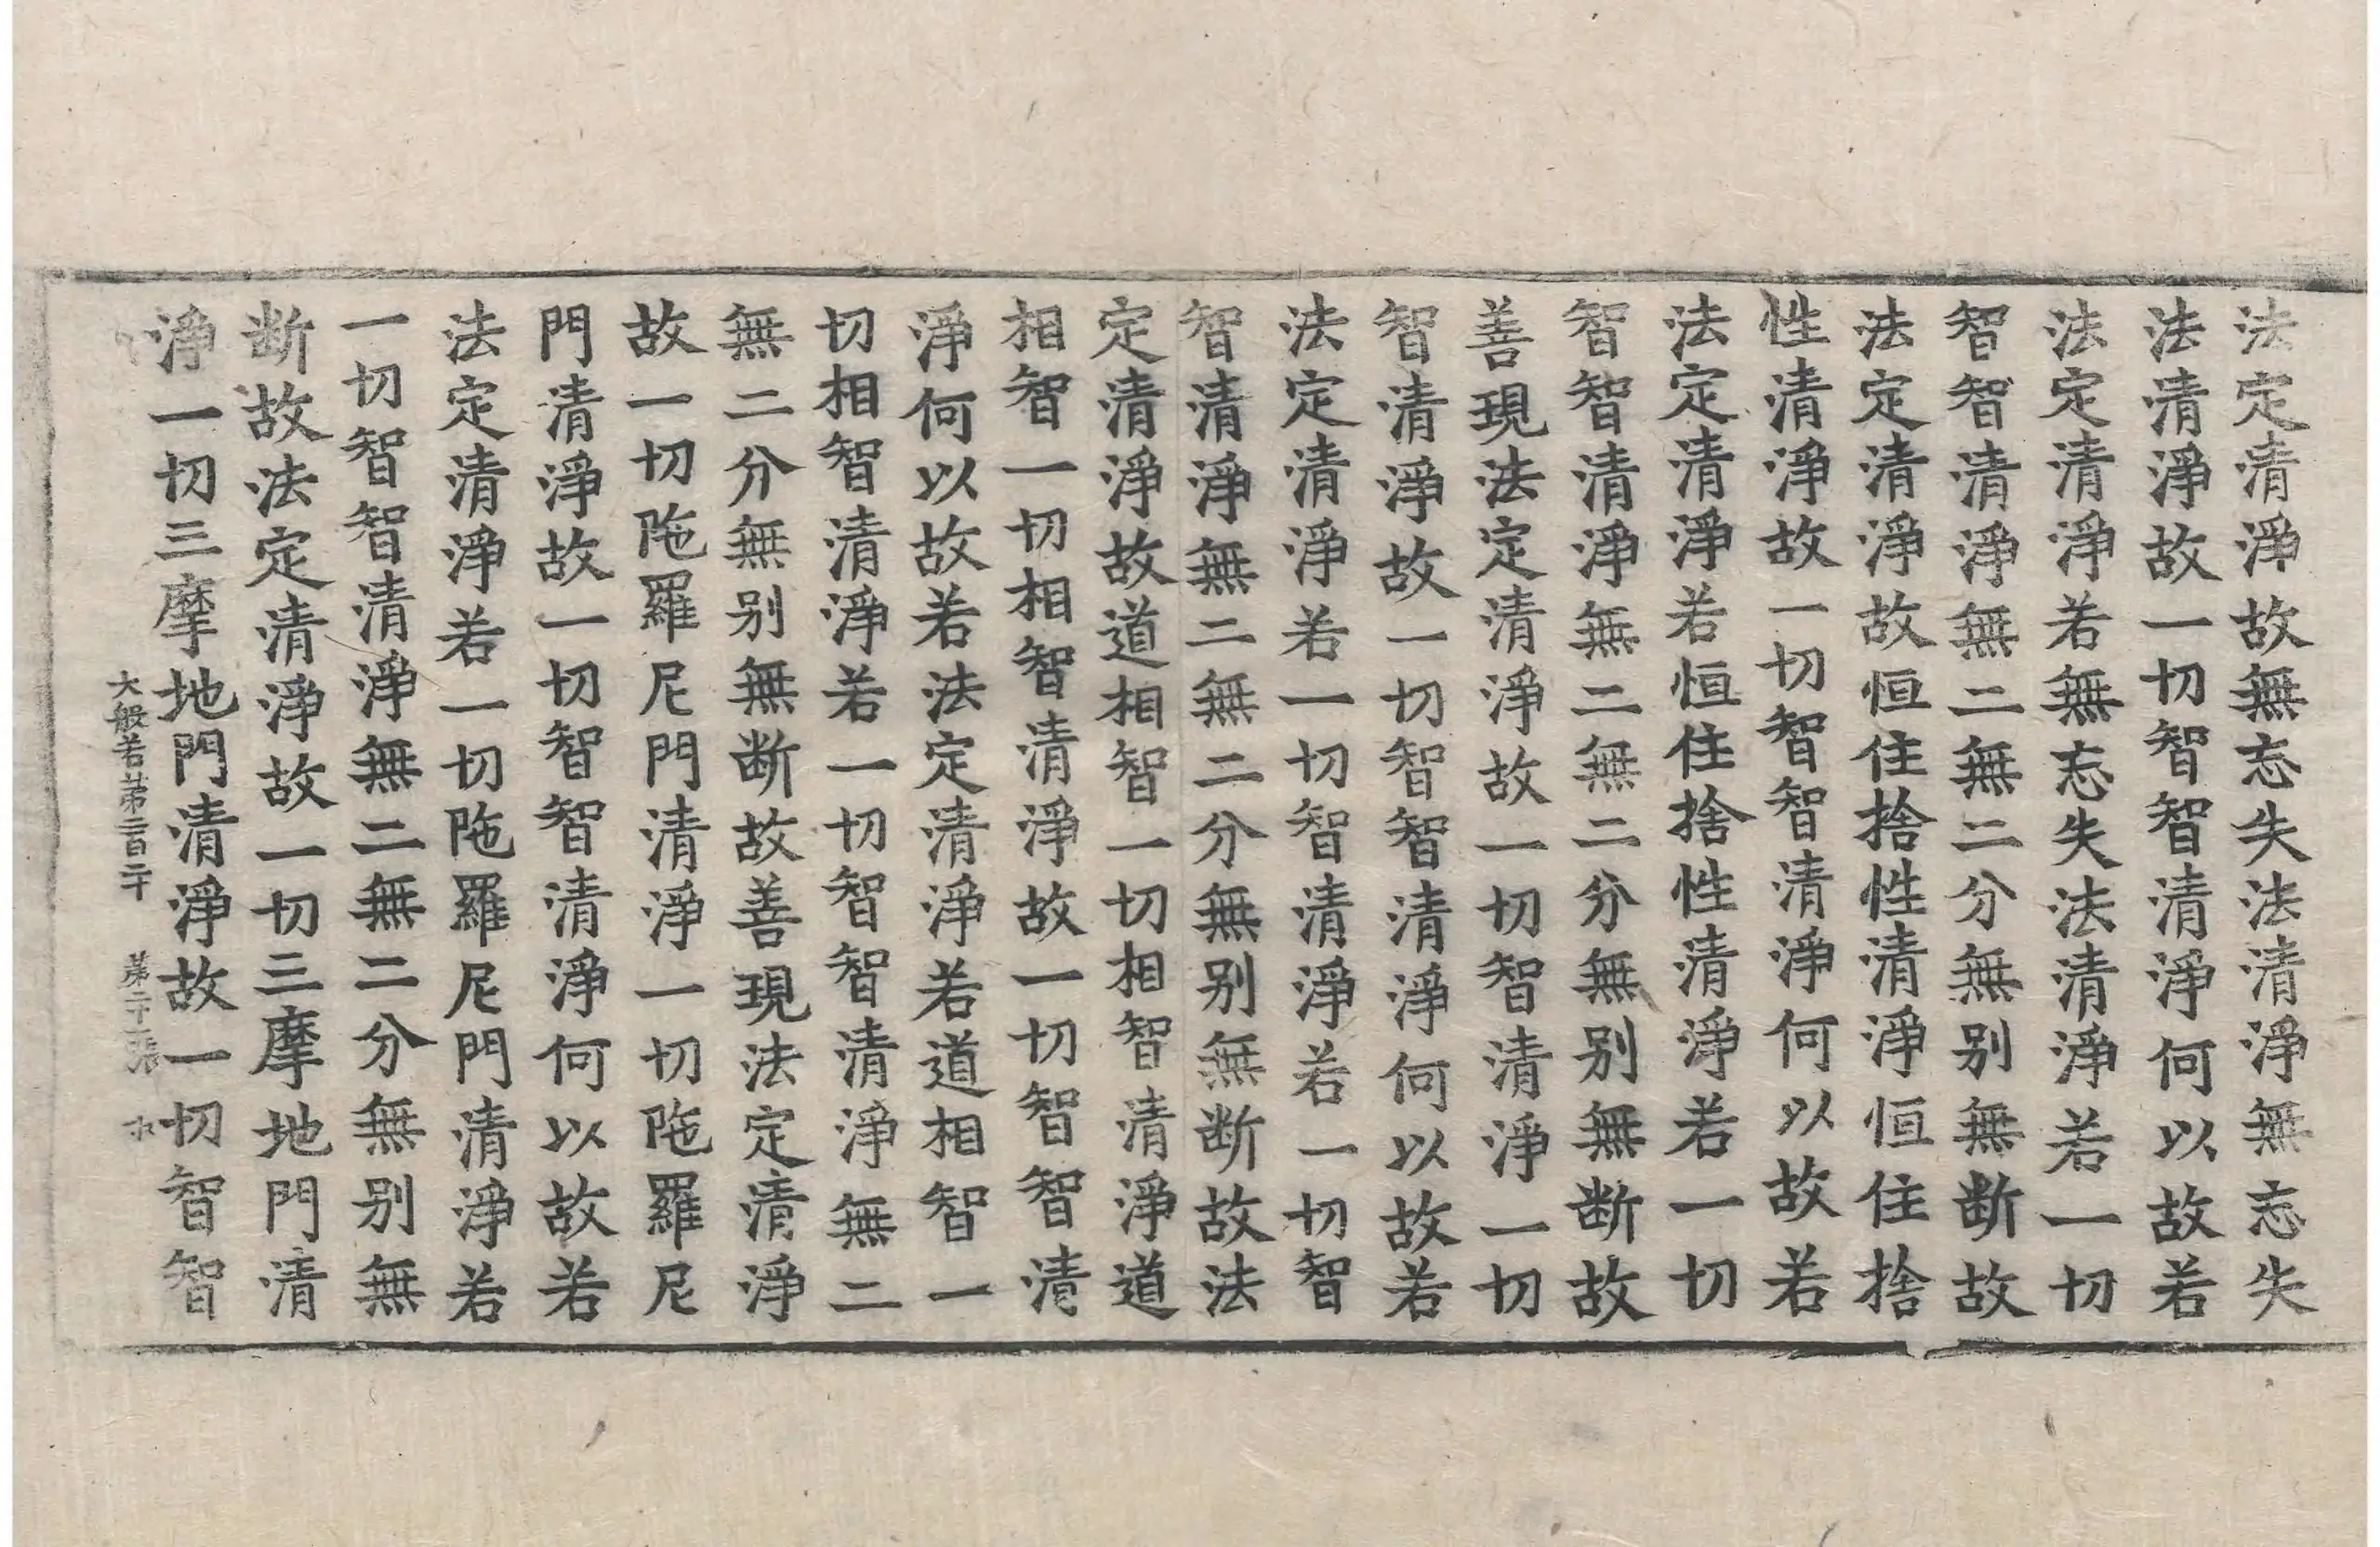 法定清淨故無忘失法清淨無忘失
法清淨故一切智智清淨何以故若
法定清淨若無忘失法清淨若一切
智智清淨無二無二分無别無断故
法定清淨故恒住捨性清淨恒住捨
性清淨故一切智智清淨何以故若
法定清淨若恒住捨性清淨若一切
智智清淨無二無二分無别無断故
善現法定清淨故一切智清淨一切
智清淨故一切智智清淨何以故若
法定清淨若一切智清淨若一切智
智清淨無二無二分無别無断故法
定清淨故道相智一切相智清淨道
相智一切相智清淨故一切智智清
淨何以故若法定清淨若道相智一
切相智清淨若一切智智清淨無二
無二分無别無断故善現法定清淨
故一切陁羅尼門清淨一切陁羅尼
門清淨故一切智智清淨何以故若
法定清淨若一切陁羅尼門清淨若
一切智智清淨無二無二分無别無
断故法定清淨故一切三摩地門清
淨一切三摩地門清淨故一切智智
大般若第二百二十